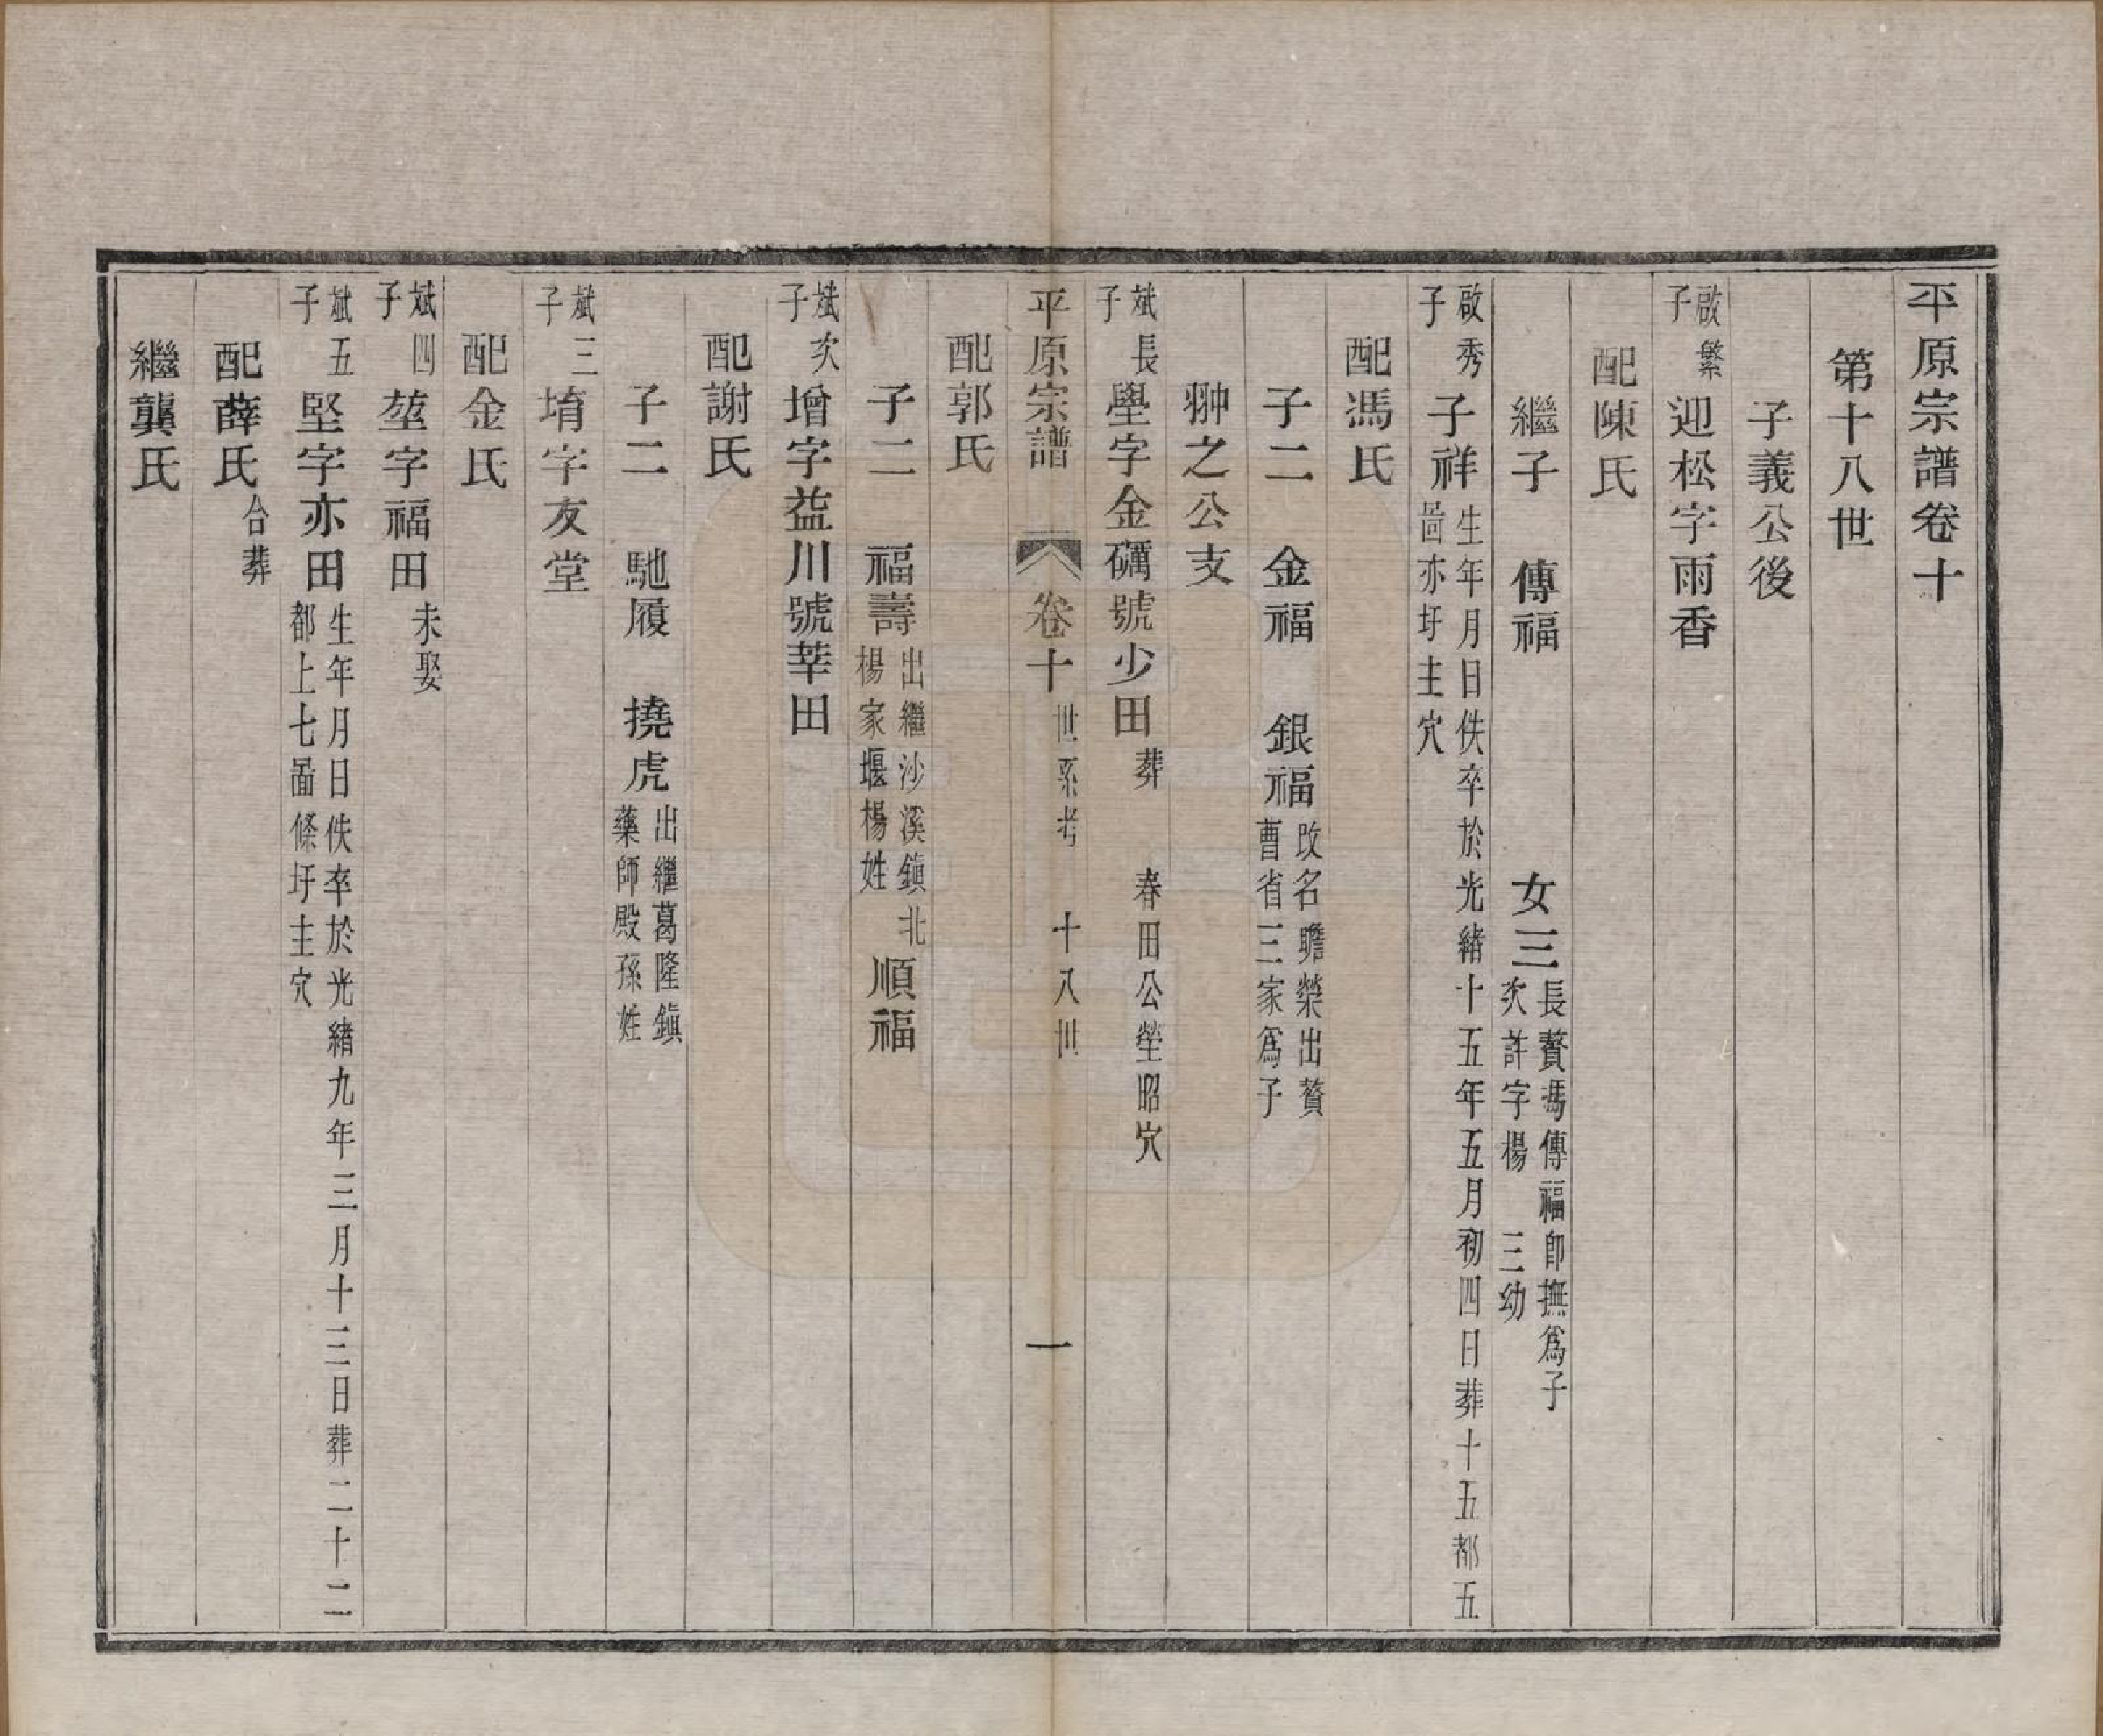 平原宗譜卷十
第十八世
子義公後
啟繁子 迎松字雨香
配陳氏
繼子 傳福 女三 長贅馮傳福卽撫爲子 次許字楊 三幼
啟秀子 子祥 生年月日佚卒於光緒十五年五月初四日葬十五都五啚亦圩主穴
配馮氏
子二 金福 銀福 改名瞻榮出贅曹省三家爲子
翀之公支
斌長子 壆字金礪號少田 葬 春田公塋昭穴
平原宗譜 卷十 世系考 十八世 一
配郭氏
子二 福壽 出繼沙溪鎭北楊家堰楊姓 順福
斌次子 增字益川號莘田
配謝氏
子二 馳履 撓虎 出繼葛隆鎭藥師殿孫姓
斌三子 堉字友堂
配金氏
斌四子 堃字福田 未娶
斌五子 堅字亦田 生年月日佚卒於光緒九年三月十三日葬二十二都上七啚條圩主穴
配薛氏 合葬
繼龔氏